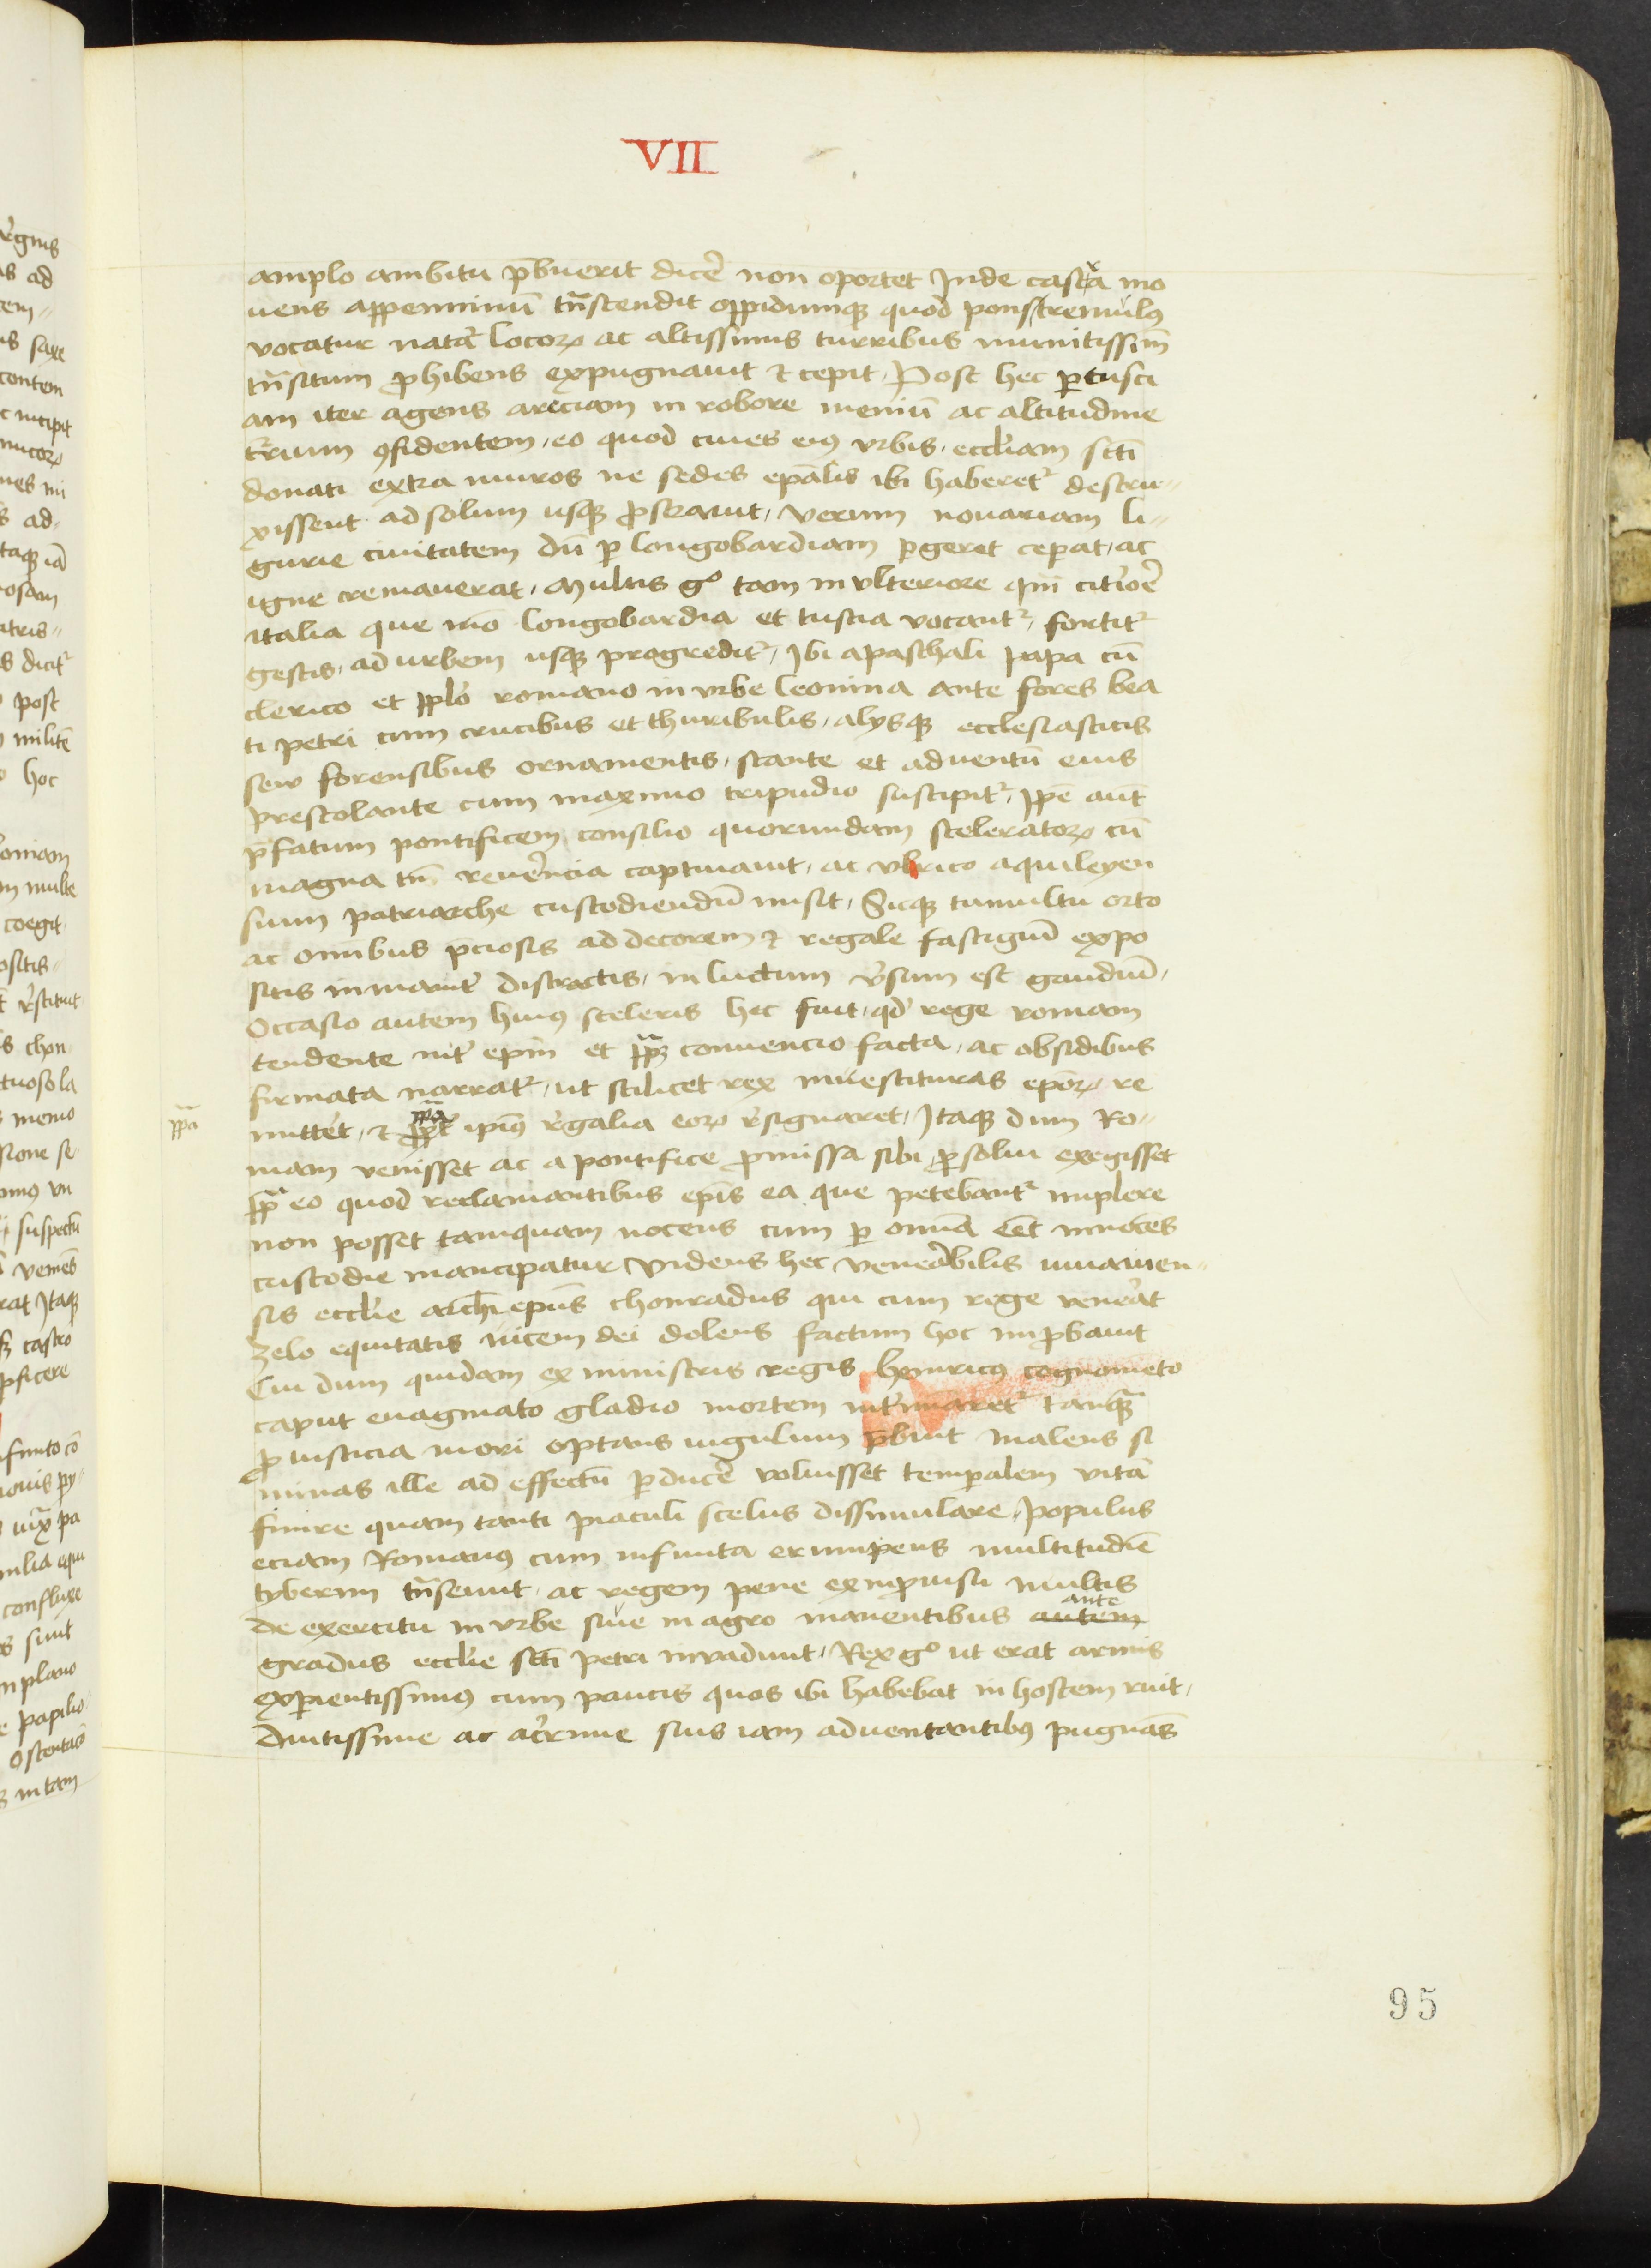 VII
amplo ambitu p̄buerit dicē non oportet Inde castra mo
uens appenninū tn̄scendit oppidumqꝫ quod ponstremulꝰ
vocatur natā locoꝝ ac altissimis turribus munitissim̄
tn̄situm ꝓhibens expugnauit ⁊ cepit, Post hec ꝑ tusci
am iter agens areciam in robore meniū ac altitudine
t̉rium ꝯfidentem, eo quod ciues eiꝰ vrbis, eccliam sct̄i
donati extra muros ne sedes epālis ibi haberet᷑ destru⸗
xissent ad solum usqꝫ ꝓstrauit, verum nouariam li⸗
gurie ciuitatem dū ꝑ longobardiam ꝑgeret ceperat, ac
igne cremauerat, Multis gº tam in vlteriore qm̄ cit̉ioē
italia que mō longobardia et tuscia vocant᷑, fortit᷑
gestis, ad urbem usqꝫ progredit᷑, Ibi a paschali papa cū
clerico et pplō romano in vrbe leonina ante fores bea
ti petri cum crucibus et thuribulis, alysqꝫ ecclesiasticis
seu forensibus ornamentis, stante et aduentū eius
prestolante cum maximo tripudio suscipit᷑, Ipē aūt
p̄fatum pontificem consilio quorundam sceleratoꝝ cū
magna tn̄ reuerēncia captiuauit, ac vlrico aquileyen
sium patriarche custodiendū misit, Sicqꝫ tumultu orto
ac omībus p̄ciosis ad decorem ⁊ regale fastigiū expo
sitis inmanit̉ distractis, in luctum v̉sum est gaudiū,
Occasio autem huiꝰ sceleris hec fuit, qd̉ rege romam
tendente int̉ epm̄ et ppꝫ conuencio facta, ac obsidibus
firmata narrat᷑, ut scilicet rex inuestituras epoꝝ re
ppa
mittet̉, ⁊ ppā ipiꝰ r̉galia eoꝝ r̉signaret, Itaqꝫ dum Ro⸗
mam venisset ac a pontifice ꝓmissa sibi ꝑsolui exegisset
pp̄ eo quod reclamantibus epīs ea que petebant᷑ implere
non posset tamquam nocens cum ꝑ omnīa eēt innocēs
custodie mancipatur Videns hec venerabilis iuuauen⸗
sis ecclie archiepūs chonradus qui cum rege venerāt
zelo equitatis uicem dei dolens factum hoc inꝓbauit
Cui dum quidam ex ministris regis heinricꝰ cognometo
caput euaginato gladio mortem int̉minaret᷑ tanqꝫ
ꝓ iusticia mori optans iugulum p̄buit malens si
minas ille ad effectū ꝑducē voluisset temꝑalem vitā
finire quam tanti piaculi scelus dissimulare, Populus
eciam Romanꝰ cum infinita erumpens multitudiē
tyberim tn̄seunt, ac regem pene ex inprouisu multis
de exercitu in vrbe siue in agro manentibus autem ante
gradus ecclie sct̄i petri inuadunt, Rex gº ut erat armis
exꝑientissimꝰ cum paucis quos ibi habebat in hostem ruit,
Diutissime ac ac̉rime suis iam aduentantibꝰ pugnās
95